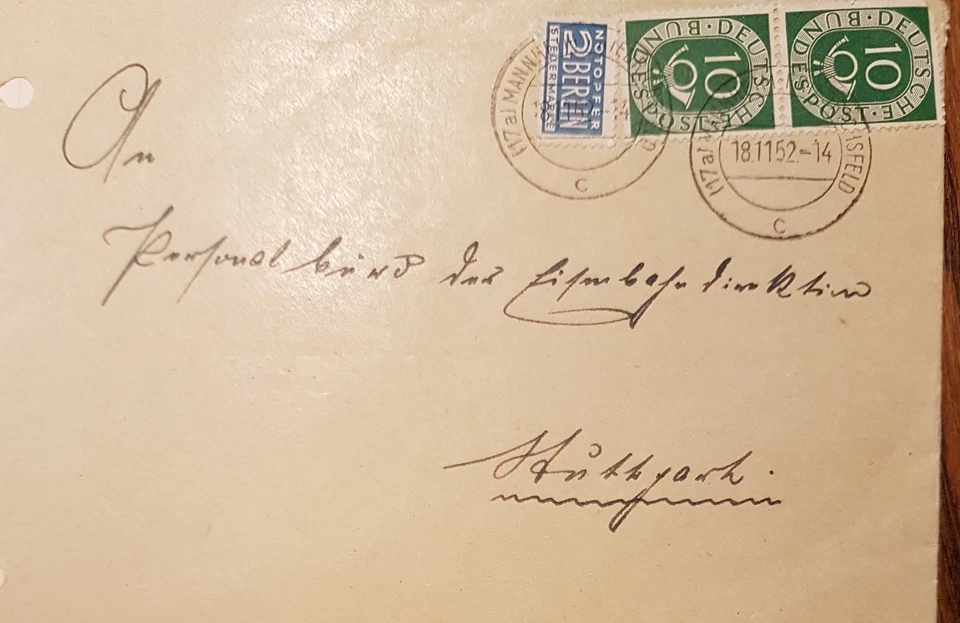 NOTOPFER
2 BERLIN
STEUERMARKE
DEUTSCHE BUNDESPOST
10
DEUTSCHE BUNDESPOST
10
(17a) MANNH
C
(17a)
18.11.52.-14
C
An
Personalbüro der Eisenbahndirektion
Stuttgart.